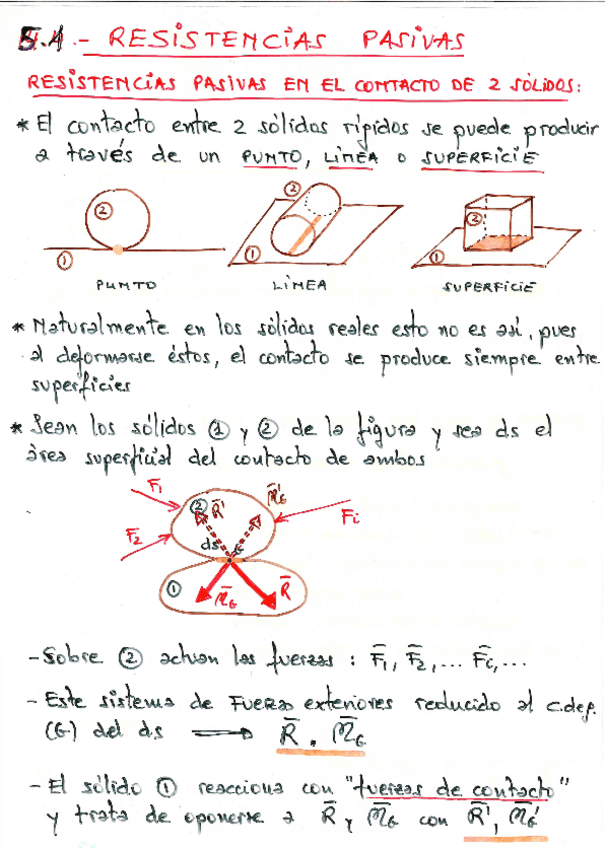 5.1.- RESISTENCIAS PASIVAS
RESISTENCIAS PASIVAS EN EL CONTACTO DE 2 SÓLIDOS:
* El contacto entre 2 sólidos rígidos se puede producir
a través de un PUNTO, LINEA o SUPERFICIE
2 2 2
1 1 1
PUNTO LINEA SUPERFICIE
* Naturalmente en los sólidos reales esto no es así, pues
al deformarse éstos, el contacto se produce siempre entre
superficies
* Sean los sólidos ① y ② de la figura y sea ds el
área superficial del contacto de ambos
F₁ ② R̄' M̄'G Fi
F̄₂ ds G
① M̄G R̄
- Sobre ② actuan las fuerzas : F̄₁, F̄₂, ... F̄i, ...
- Este sistema de Fuerzas exteriores reducido al c.dep.
(G) del ds → R̄ . M̄G
- El sólido ① reacciona con "fuerzas de contacto"
y trata de oponerse a R̄ y M̄G con R̄', M̄'G